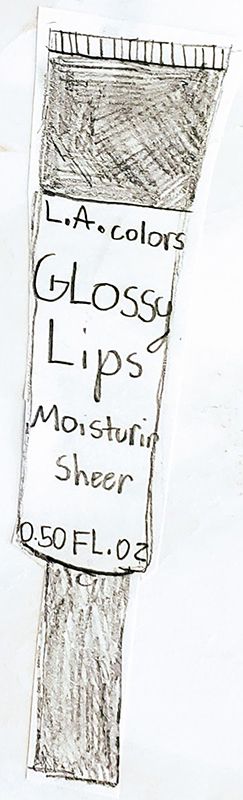 L.A. colors
GLossy
Lips
Moisturin
Sheer
0.50 FL.OZ